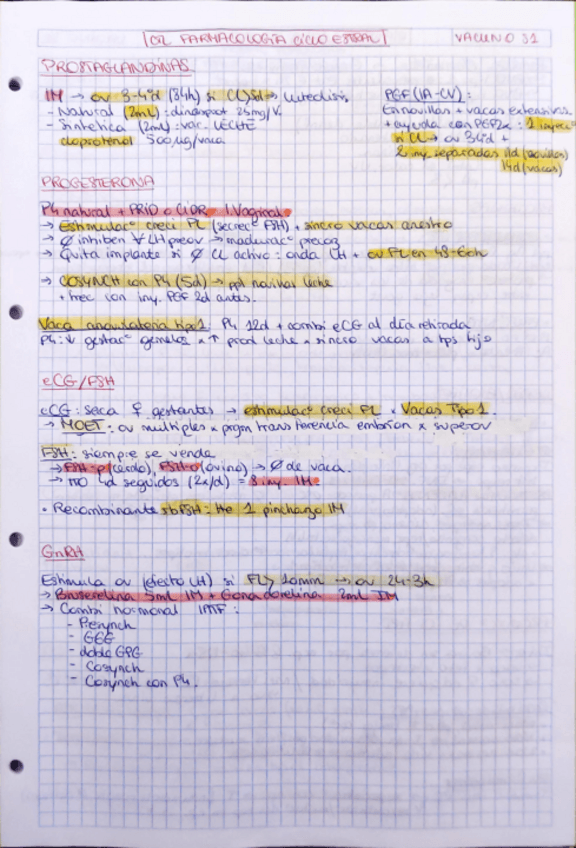 FARMACOLOGÍA CICLO ESTRAL
VACUNO S1
PROSTAGLANDINAS
IM → ov 3-4d (84h) si CL>5d → luteolisis
- Natural (2mL): dinoprost 25mg/V.
- Sintética (2mL): vac. LECHE
cloprostenol 500µg/vaca
PGF (IA-CV):
En novillas + vacas extensivas.
+ ayuda con PGF2α: 1 inyecc
si CL → ov 3-4d +
2 iny. separadas 11d (novillas)
14d (vacas)
PROGESTERONA
P4 natural + PRID o CIDR I.Vaginal
→ Estimulac° creci FL (secrec° FSH) + sincro vacas anestro
→ Ø inhiben LH preov → madurac° precoz
→ Quita implante si Ø CL activo: onda LH + ov FL en 48-60h
→ COSYNCH con P4 (5d) → ppl novillas leche
+ frec con iny. PGF 2d antes.
Vaca anovulatoria tipo 1: P4 12d + combi eCG al día retirada
P4: ↓ gestac° gemelos × ↑ prod leche × sincro vacas a tps fijo
eCG/FSH
eCG: seca ♀ gestantes → estimulac° creci FL × Vacas Tipo 1.
→ MOET: ov multiples × progm transferencia embrion × superov
FSH: siempre se vende
→ FSH-p (cerdo), FSH-o (ovino) → Ø de vaca.
→ TTO 4d seguidos (2x/d) = 8 iny. IM.
• Recombinante rbFSH: 1 pinchazo IM
GnRH
Estimula ov (efecto LH) si FL> 10mm → ov 24-3h
→ Buserelina 5mL IM + Gonadorelina 2mL IM
→ Combi hormonal IATF:
- Presynch
- G6G
- doble GPG
- Cosynch
- Cosynch con P4.